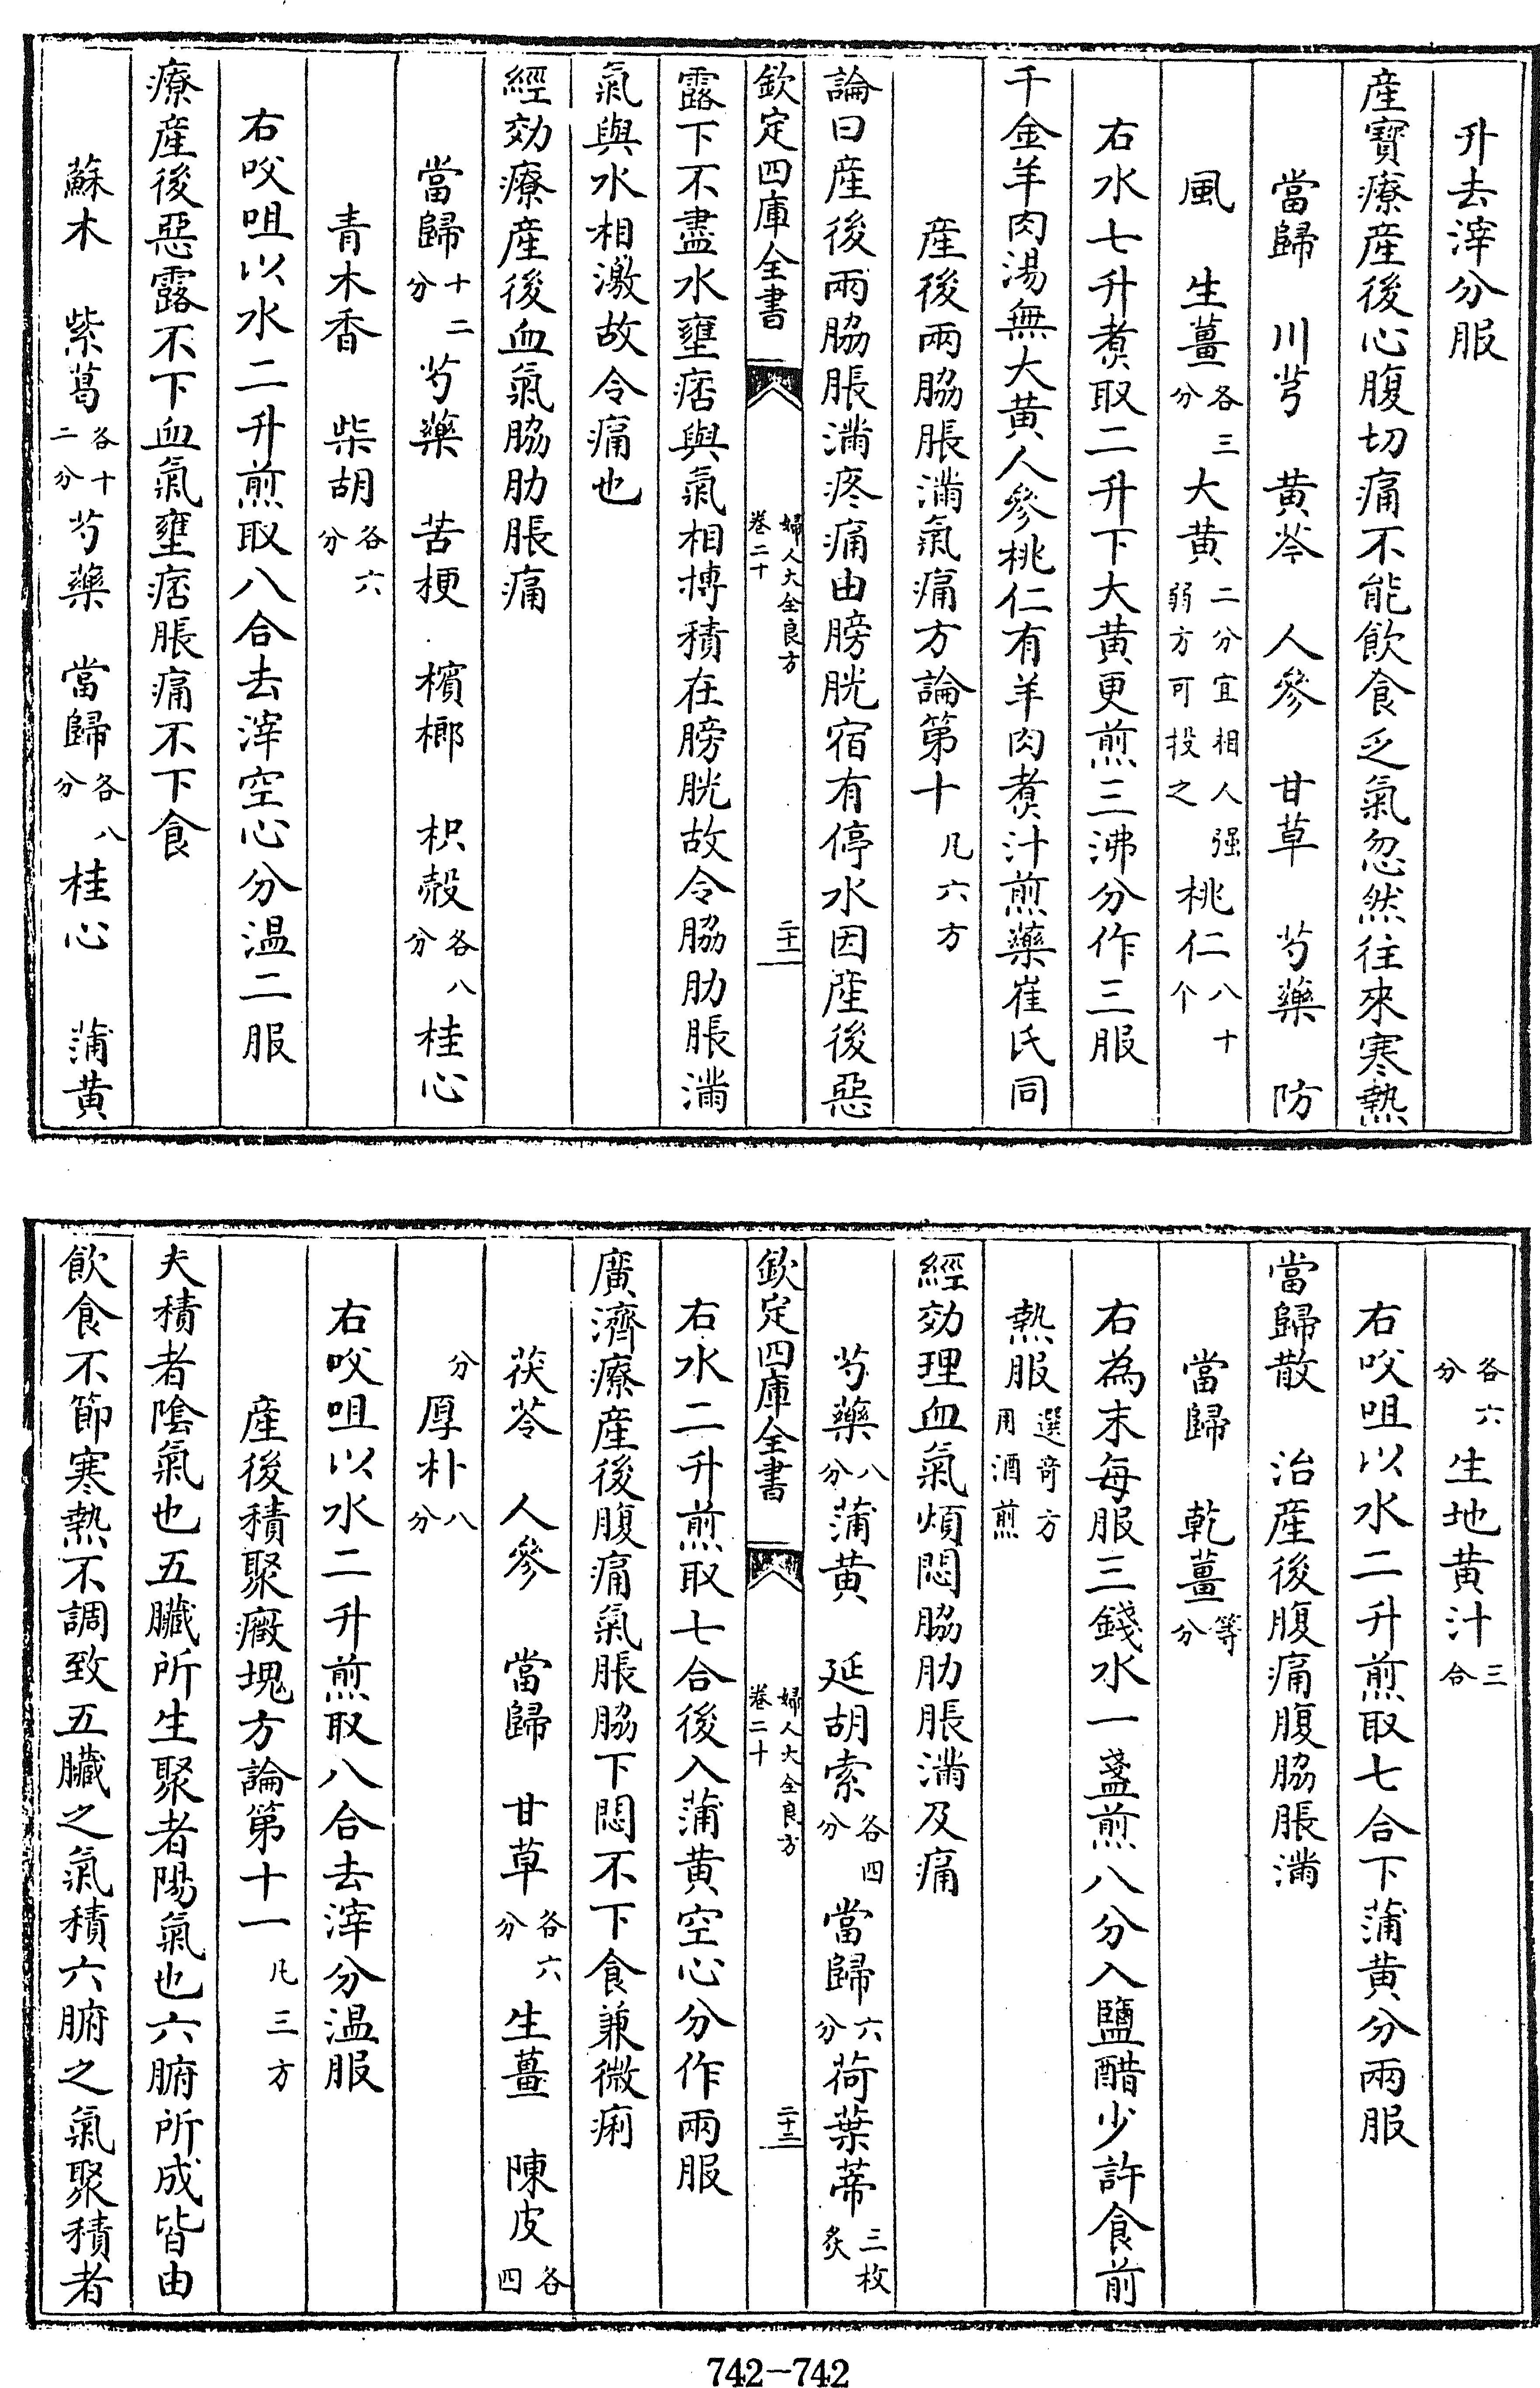 升去滓分服
産寳療産後心腹切痛不能飲食乏氣忽然往來寒熱
當歸　川芎　黄芩　人參　甘草　芍藥　防
風　生薑各三分　大黄二分宜相人强弱方可投之　桃仁八十个
右水七升煑取二升下大黄更煎三沸分作三服
千金羊肉湯無大黄人參桃仁有羊肉煑汁煎藥崔氏同
産後兩脇脹滿氣痛方論第十凡六方
論曰産後兩脇脹滿疼痛由膀胱宿有停水因産後惡
欽定四庫全書　婦人大全良方卷二十　二十一
露下不盡水壅痞與氣相搏積在膀胱故令脇肋脹滿
氣與水相激故令痛也
經効療産後血氣脇肋脹痛
當歸十二分　芍藥　苦梗　檳榔　枳殻各八分　桂心
青木香　柴胡各六分
右㕮咀以水二升煎取八合去滓空心分温二服
療産後惡露不下血氣壅痞脹痛不下食
蘇木　紫葛各十二分　芍藥　當歸各八分　桂心　蒲黄
各六分　生地黄汁三合
右㕮咀以水二升煎取七合下蒲黄分兩服
當歸散　治産後腹痛腹脇脹滿
當歸　乾薑等分
右為末每服三錢水一盞煎八分入鹽醋少許食前
熱服選竒方用酒煎
經効理血氣煩悶脇肋脹滿及痛
芍藥八分　蒲黄　延胡索各四分　當歸六分　荷葉蒂三枚炙
欽定四庫全書　婦人大全良方卷二十　二十二
右水二升煎取七合後入蒲黄空心分作兩服
廣濟療産後腹痛氣脹脇下悶不下食兼微痢
茯苓　人參　當歸　甘草各六分　生薑　陳皮各四
分　厚朴八分
右㕮咀以水二升煎取八合去滓分温服
産後積聚癥塊方論第十一凡三方
夫積者陰氣也五臟所生聚者陽氣也六腑所成皆由
飲食不節寒熱不調致五臟之氣積六腑之氣聚積者
742-742